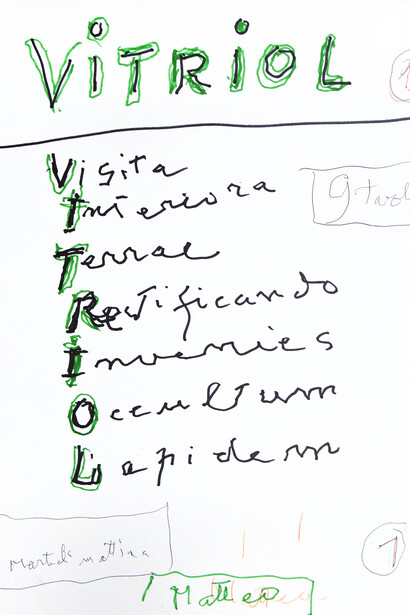 VITRIOL
Visita
Interiora
Terrae
Rectificando
Invenies
Occultum
Lapidem
Martedì mattina
1
Matteo